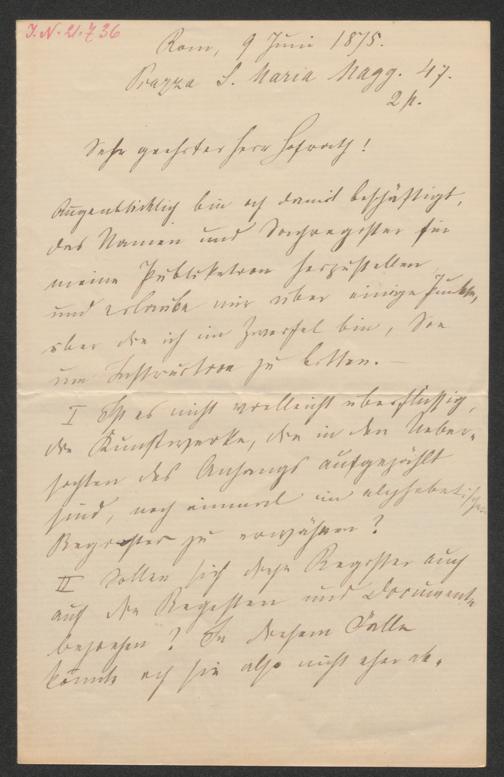 I.N. 21.736
Rom, 9 Juni 1875.
Piazza S. Maria Magg. 47.
2 p.
Sehr geehrter Herr Hofrath!
Augenblicklich bin ich damit beschäftigt,
das Namen und Sachregister für
meine Publikation herzustellen
und erlaube mir über einige Punkte,
über die ich im Zweifel bin, Sie
um Instruction zu bitten. —
I Ist es nicht vielleicht überflüssig,
die Kunstwerke, die in den Ueber-
sichten des Anhangs aufgezählt
sind, noch einmal im alphabetischen
Register zu erwähnen?
II Sollen sich diese Register auch
auf die Regesten und Documente
beziehen? In diesem Falle
könnte ich sie also nicht eher ab-